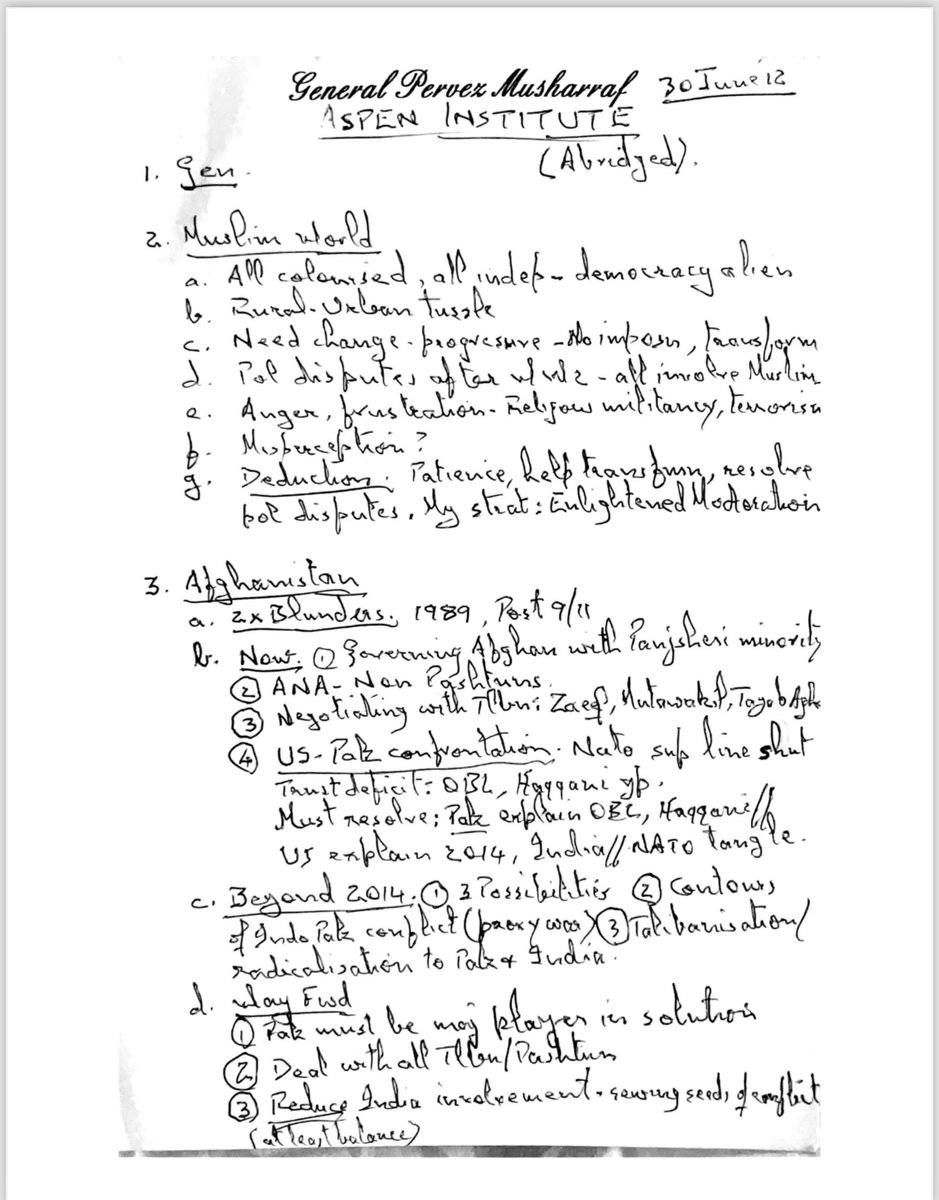 General Pervez Musharraf 30 June 12
ASPEN INSTITUTE
(Abridged).
1. Gen.
2. Muslim world
a. All colonised, all indep - democracy alien
b. Rural-Urban tussle
c. Need change - progressive - No imposn, transform
d. Pol disputes after WW2 - all involve Muslim
e. Anger, frustration - Religous militancy, terrorism
f. Misperception?
g. Deduction: Patience, help transform, resolve
pol disputes. My strat: Enlightened Moderation
3. Afghanistan
a. 2x Blunders. 1989, Post 9/11
b. Now. ① Governing Afghan with Panjsheri minority
② ANA - Non Pashtuns.
③ Negotiating with Tlbn: Zaeef, Mutawakil, Tayab Agha
④ US-Pak confrontation. Nato sup line shut
Trust deficit: OBL, Haqqani gp.
Must resolve; Pak explain OBL, Haqqani//
US explain 2014, India//NATO tangle.
c. Beyond 2014. ① 3 Possibilities ② Contours
of Indo Pak conflict (proxy war) ③ Talibanisation/
radicalisation to Pak & India.
d. Way Fwd
① Pak must be maj player in solution
② Deal with all Tlbn/Pashtun
③ Reduce India involvement - sewing seeds of conflict
(at least balance)